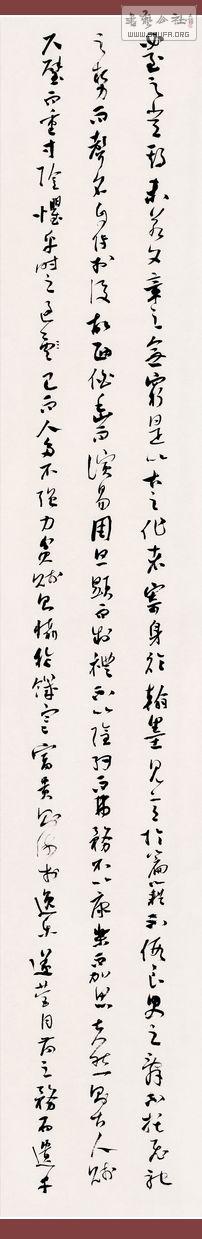 書藝公社
至之常期未若文章之無窮是以古之作者寄身於翰墨見意於篇籍不假良史之辭不託飛馳
之勢而聲名自傳於後故西伯幽而演易周旦顯而制禮不以隱約而弗務不以康樂而加思夫然則古人賤
尺璧而重寸陰懼乎時之過已而人多不強力貧賤則懾於饑寒富貴則流於逸樂遂營目前之務而遺千